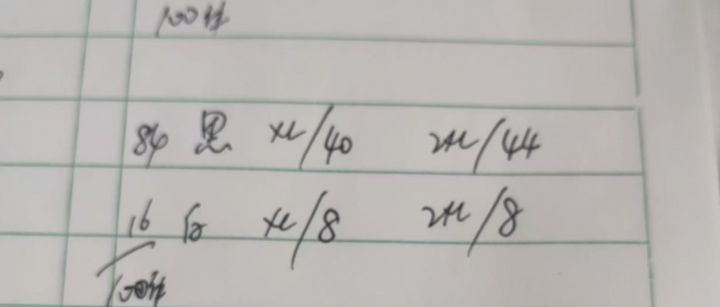 100件
84 黑 XL/40 2XL/44
16 白 XL/8 2XL/8
100件